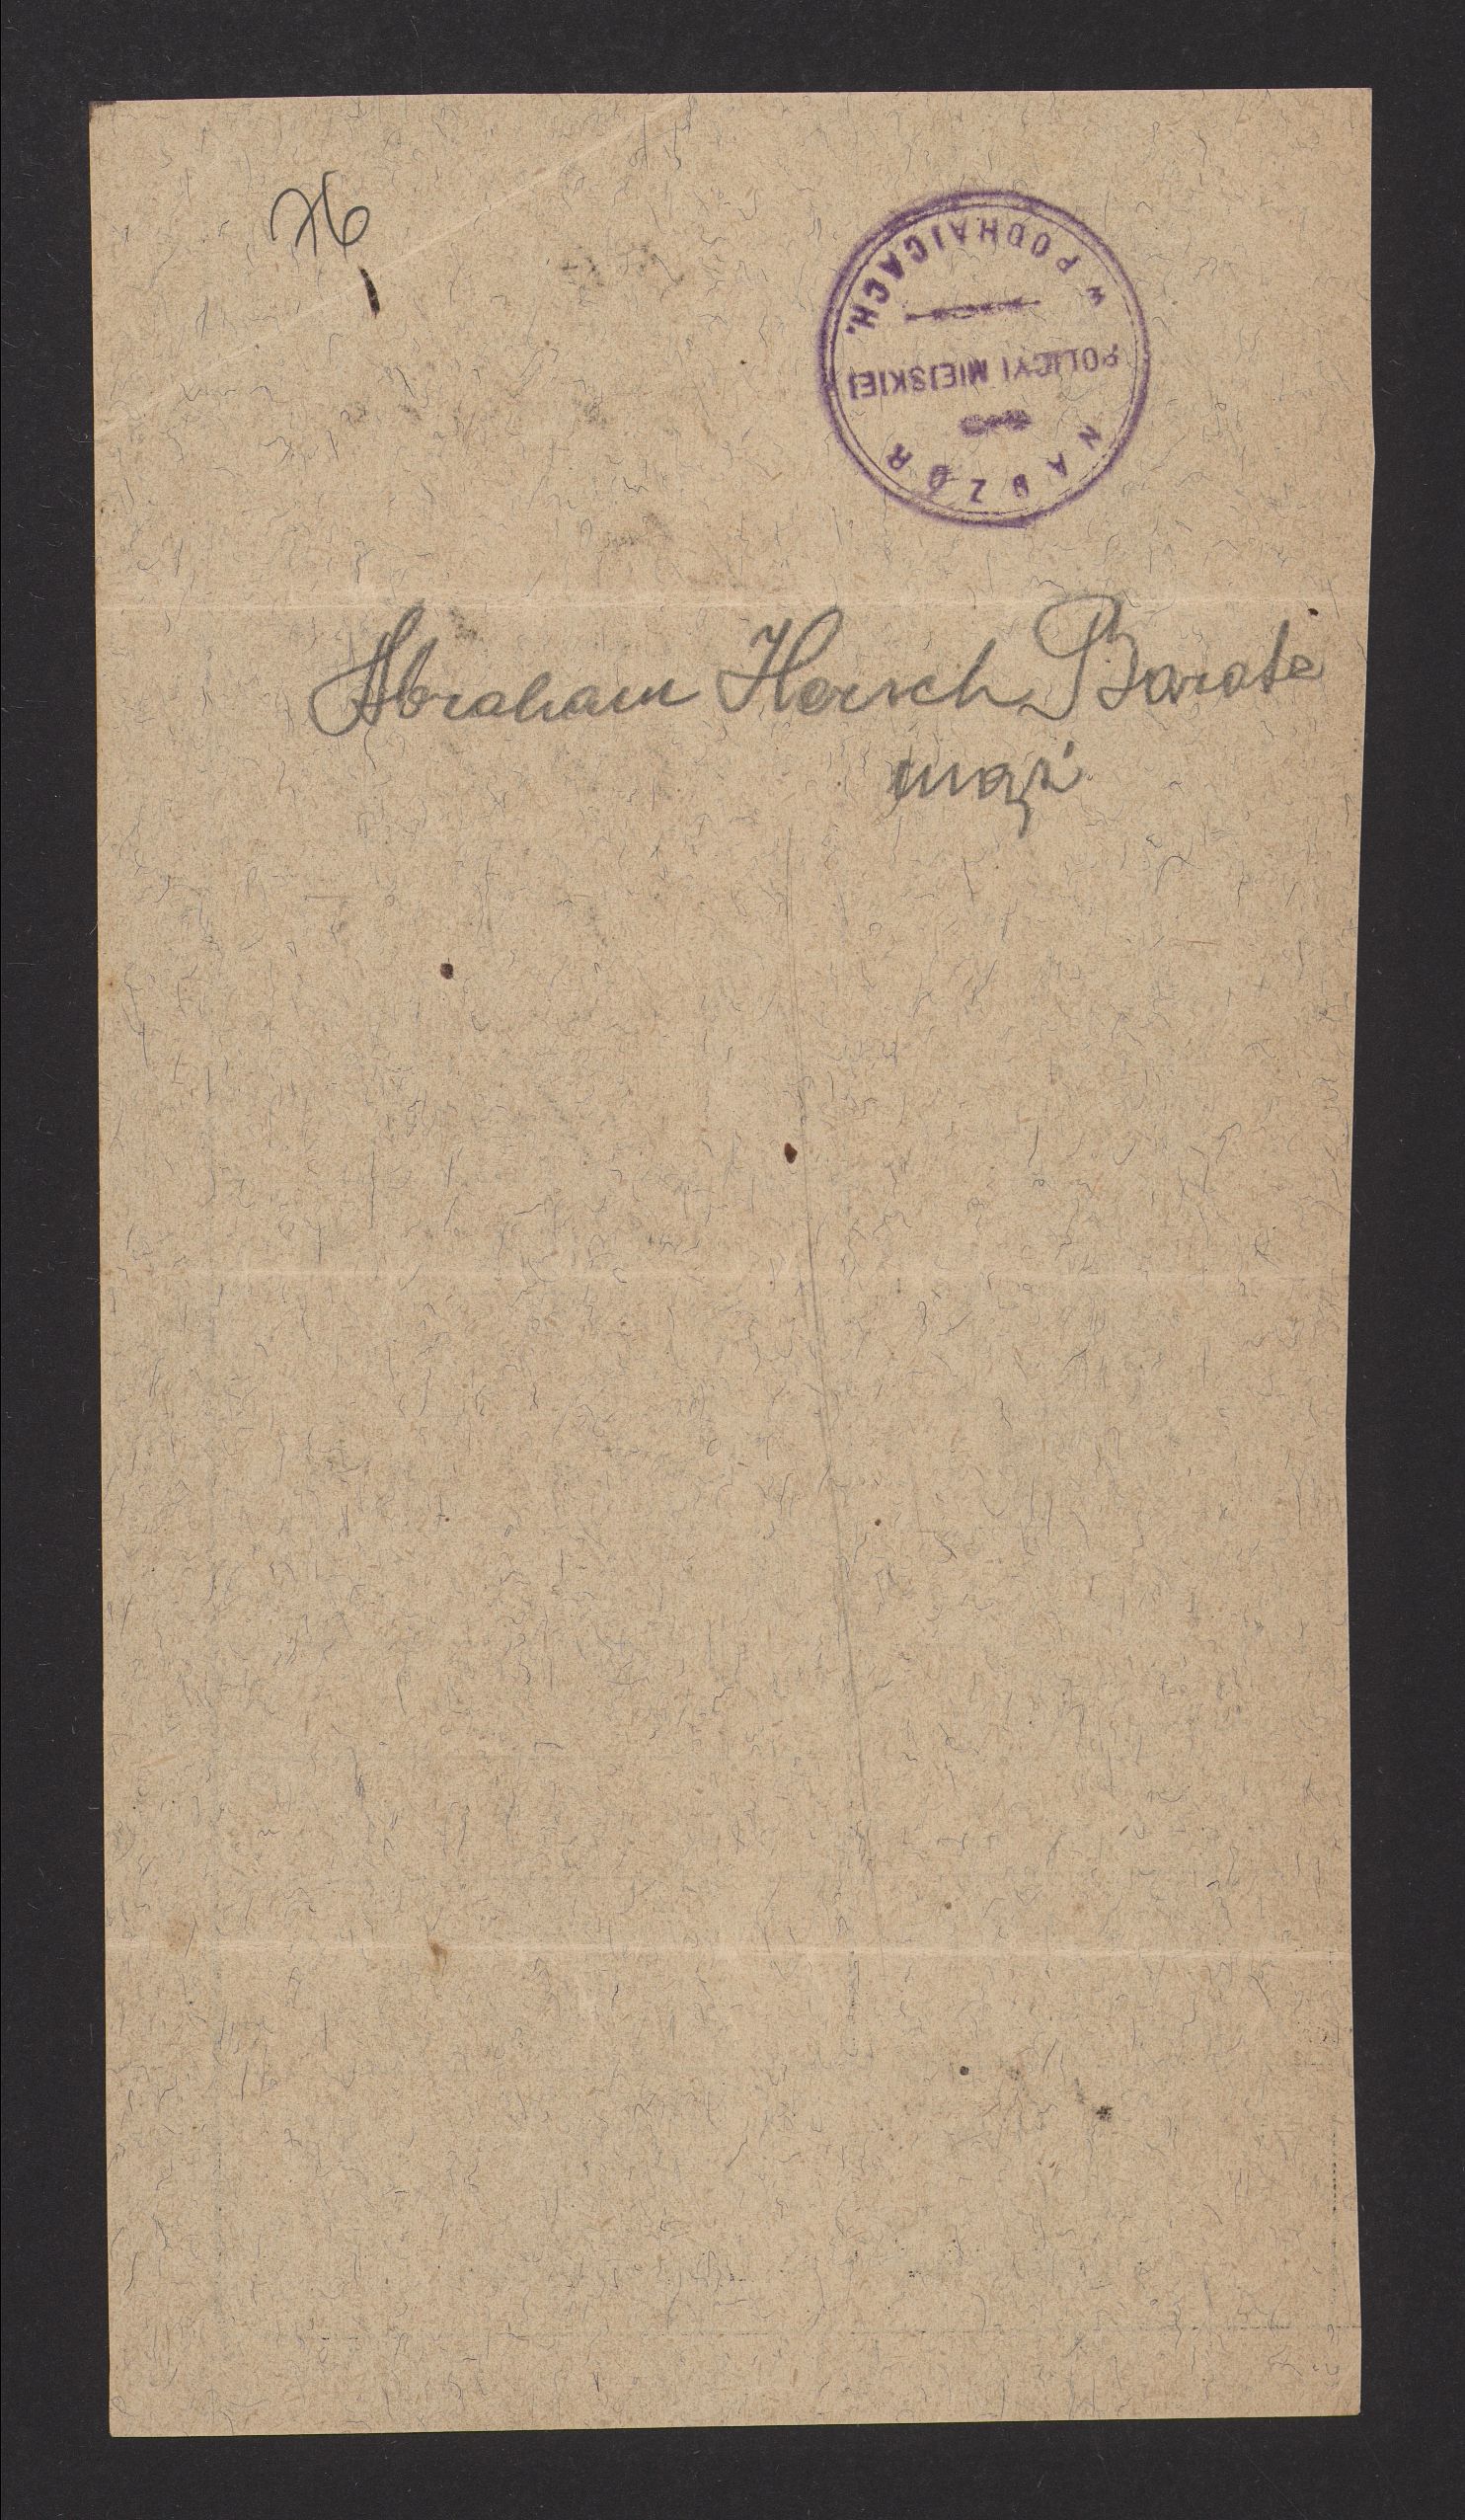 76
NADZÓR
POLICYI MIEJSKIEJ
w PODHAJCACH.
Abraham Hersch Barate